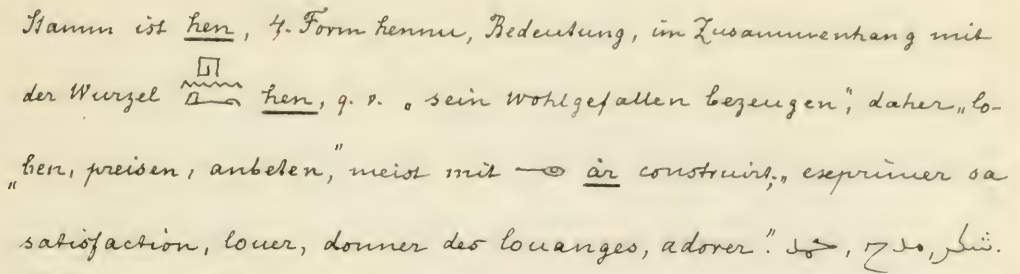 Stamm ist hen, 4. Form hennu, Bedeutung, im Zusammenhang mit
der Wurzel 𓉔𓈖𓂝 hen, q. v. „sein Wohlgefallen bezeugen“, daher „lo-
„ben, preisen, anbeten,“ meist mit 𓂋 àr construirt, „exprimer sa
satisfaction, louer, donner des louanges, adorer.“ شكر, مدح, حمد.